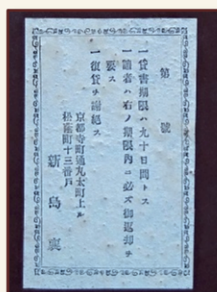 第　　號
一貸書期限ハ九十日間トス
一讀者ハ右ノ期限内ニ必ズ御返却ヲ
要ス
一復貸ヲ謝絶ス
京都寺町通丸太町上ル
松蔭町十三番戸
新島襄